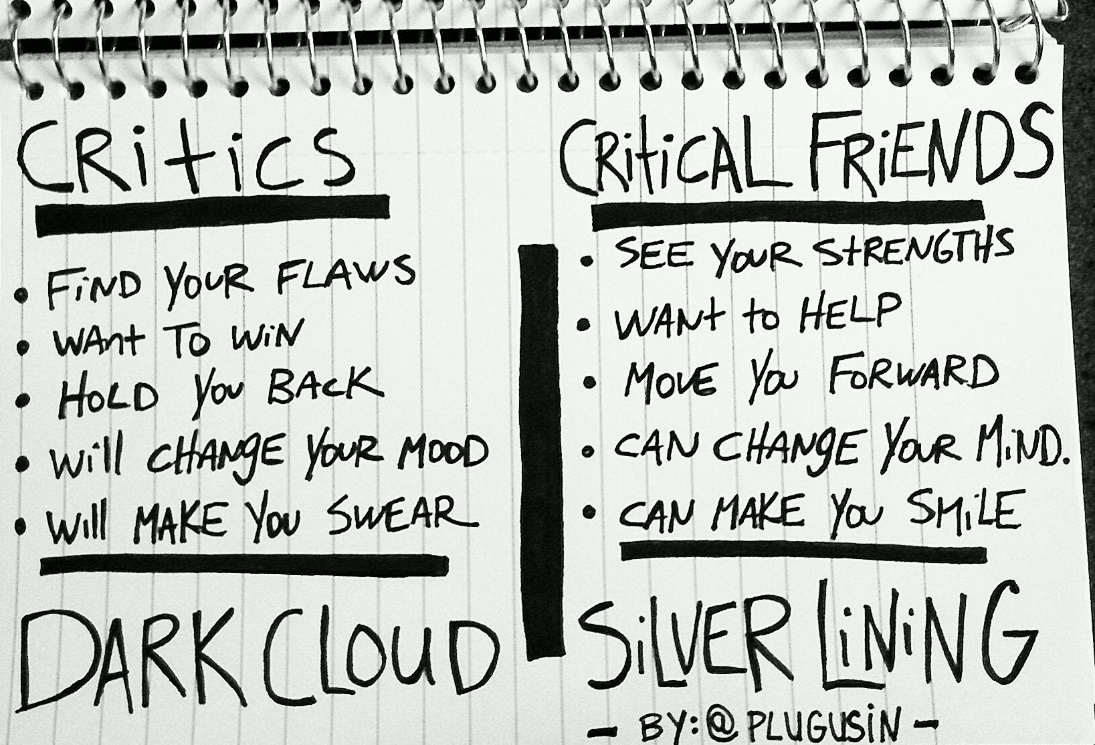 CRitiCS
• FiND YOUR FLAWS
• WAnt TO WiN
• HOLD YOU BACK
• Will CHANgE YOUR MOOD
• Will MAKE YOU SWEAR
DARK CLOUD
CRitiCAL FRiENDS
• SEE YOUR StRENGTHS
• WANt to HELP
• MOVE YOU FORWARD
• CAN CHANgE YOUR MiND.
• CAN MAKE YOU SMiLE
SiLVER LiNiNG
- BY: @PLUGUSiN -